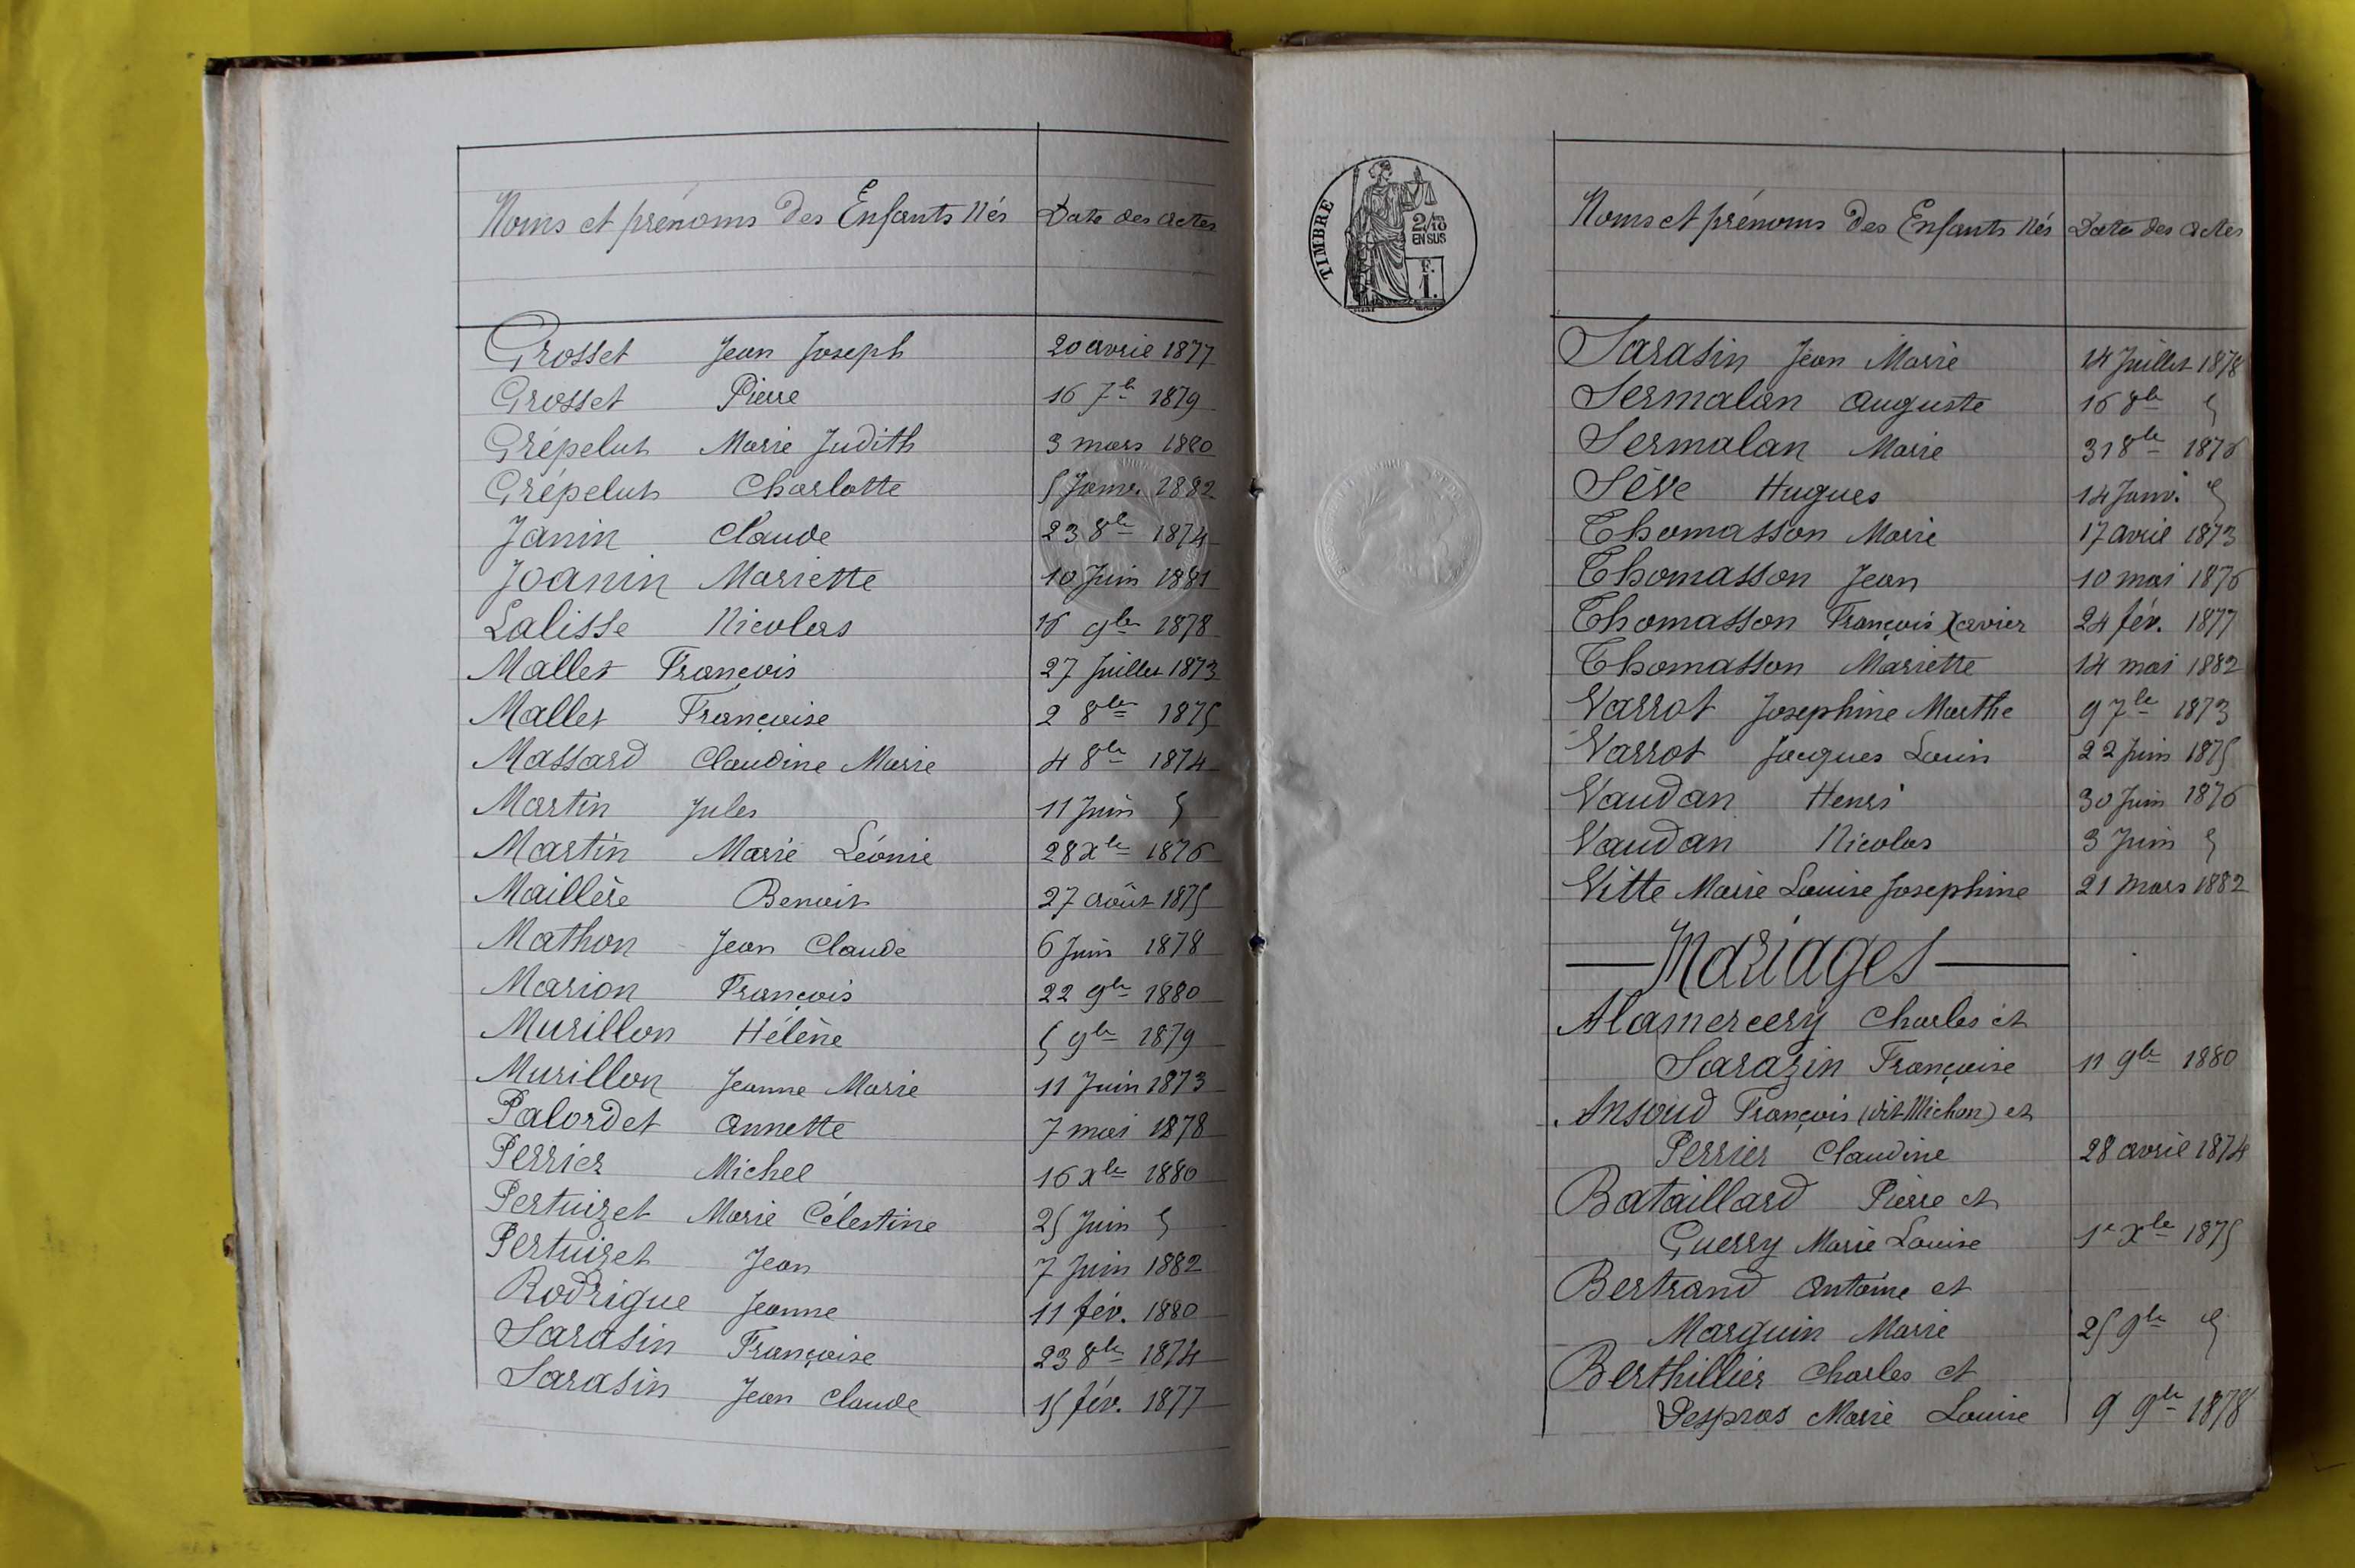 Noms et prénoms des Enfants Nés Date des actes
Grosset Jean Joseph 20 avril 1877
Grosset Pierre 16 7bre 1879
Grépelut Marie Judith 3 mars 1880
Grépelut Charlotte 5 Janv. 1882
Janin Claude 23 8bre 1874
Joanin Mariette 10 Juin 1881
Lalisse Nicolas 16 9bre 1878
Mallet François 27 Juillet 1873
Mallet Françoise 2 8bre 1875
Massard Claudine Marie 4 8bre 1874
Martin Jules 11 Juin
Martin Marie Léonie 28 Xbre 1876
Maillère Benoit 27 août 1875
Mathon Jean Claude 6 Juin 1878
Marion François 22 9bre 1880
Murillon Hélène 5 9bre 1879
Murillon Jeanne Marie 11 Juin 1873
Palordet Annette 7 mai 1878
Perrier Michel 16 Xbre 1880
Pertuizet Marie Célestine 25 Juin
Pertuizet Jean 7 Juin 1882
Rodrigue Jeanne 11 fév. 1880
Sarasin Françoise 23 8bre 1874
Sarasin Jean Claude 15 fév. 1877
TIMBRE
2/10
EN SUS
F.
1.
Noms et prénoms des Enfants Nés Date des actes
Sarasin Jean Marie 14 Juillet 1878
Sermalan Auguste 16 8bre
Sermalan Marie 31 8bre 1876
Sève Hugues 14 Janv.
Thomasson Marie 17 avril 1873
Thomasson Jean 10 mai 1876
Thomasson François Xavier 24 fév. 1877
Thomasson Mariette 14 mai 1882
Varrot Josephine Marthe 9 7bre 1873
Varrot Jacques Louis 22 Juin 1875
Vaudan Henri 30 Juin 1876
Vaudan Nicolas 3 Juin
Vitte Marie Louise Josephine 21 Mars 1882
Mariages
Alamercery Charles et
Sarazin Françoise 11 9bre 1880
Ansoud François (dit Michon) et
Perrier Claudine 28 avril 1874
Bataillard Pierre et
Guerry Marie Louise 1e Xbre 1875
Bertrand Antoine et
Marguin Marie 25 9bre
Berthillier Charles et
Despras Marie Louise 9 9bre 1878